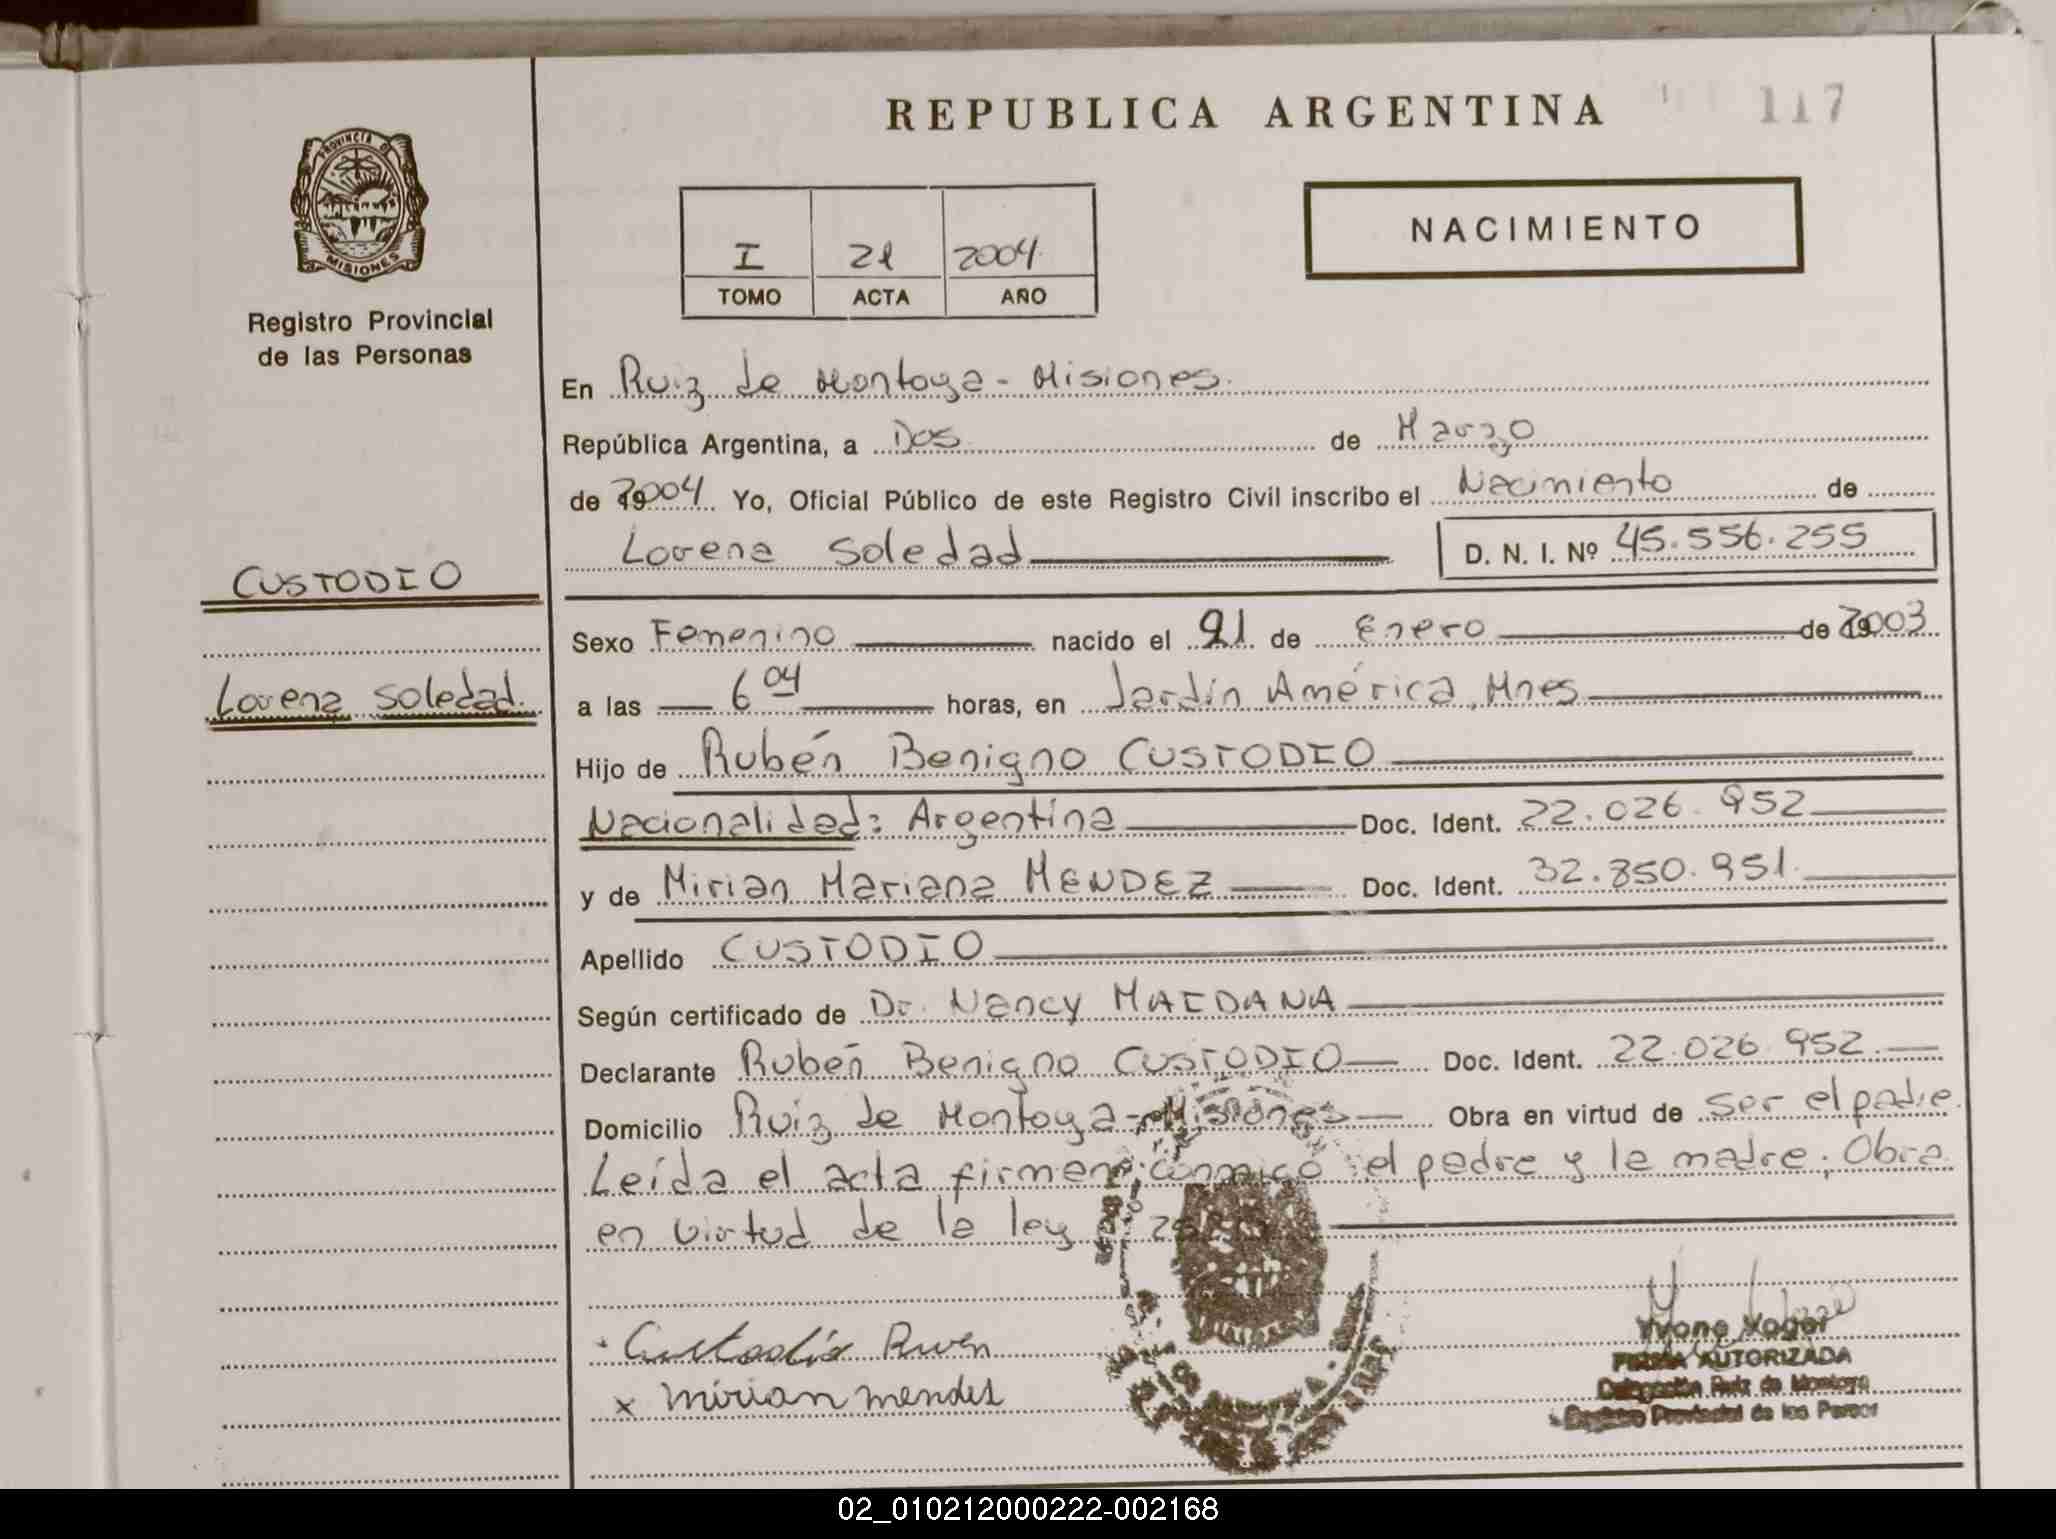 REPUBLICA ARGENTINA
117
PROVINCIA DE
MISIONES
Registro Provincial
de las Personas
I 21 2004
TOMO ACTA AÑO
NACIMIENTO
En Ruiz de Montoya - Misiones.
República Argentina, a Dos de Marzo
de 2004 Yo, Oficial Público de este Registro Civil inscribo el Nacimiento de
Lorena Soledad D. N. I. Nº 45.556.255
CUSTODIO
Sexo Femenino nacido el 21 de Enero de 2003
Lorena Soledad.
a las 6 04 horas, en Jardín América, Mnes
Hijo de Rubén Benigno CUSTODIO
Nacionalidad: Argentina Doc. Ident. 22.026.952
y de Mirian Mariana MENDEZ Doc. Ident. 32.850.951.
Apellido CUSTODIO
Según certificado de Dr. Nancy MAIDANA
Declarante Rubén Benigno CUSTODIO Doc. Ident. 22.026.952.
Domicilio Ruiz de Montoya - Misiones Obra en virtud de ser el padre.
Leída el acta firman conmigo el padre y la madre; Obra
en virtud de la ley
Custodio Ruven
x mirian mendes
Yvone Yager
FIRMA AUTORIZADA
Delegación Ruiz de Montoya
Registro Provincial de las Person
02_010212000222-002168